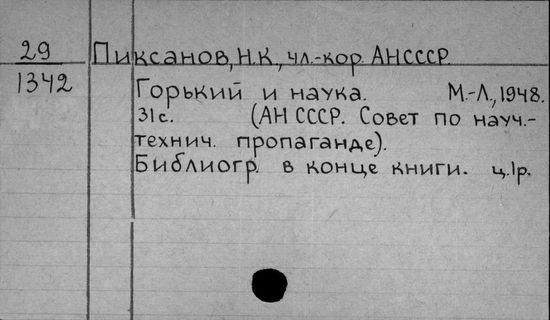 29 Пиксанов, Н.К., чл.-кор. АНСССР.
1342 Горький и наука. М.-Л., 1948.
31с. (АН СССР. Совет по науч.-
технич. пропаганде).
Библиогр. в конце книги. ц.1р.